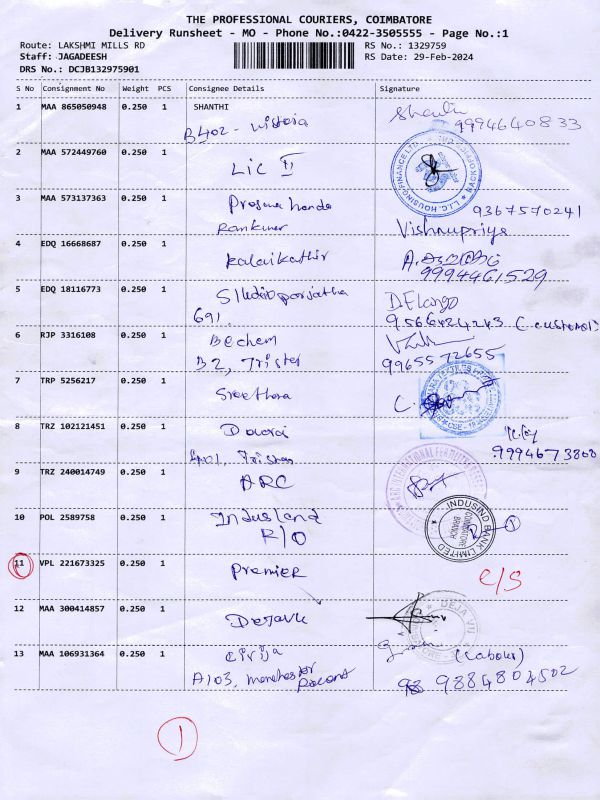 THE PROFESSIONAL COURIERS, COIMBATORE
Delivery Runsheet - MO - Phone No.:0422-3505555 - Page No.:1
Route: LAKSHMI MILLS RD
RS No.: 1329759
Staff: JAGADEESH
RS Date: 29-Feb-2024
DRS No.: DCJB132975901
S No Consignment No Weight PCS Consignee Details Signature
1 MAA 865050948 0.250 1 SHANTHI
B402 - Wisteria 9994640833
2 MAA 572449760 0.250 1
LIC II
L.I.C. HOUSING FINANCE LTD
3 MAA 573137363 0.250 1 9367570241
Ramkumar Vishnupriya
4 EDQ 16668687 0.250 1
Kalaikathir 9994461529
5 EDQ 18116773 0.250 1 D. Elango
691.
6 RJP 3316108 0.250 1 Bechem
B2, Tristar 9965572655
7 TRP 5256217 0.250 1
8 TRZ 102121451 0.250 1
9994673808
401,
9 TRZ 240014749 0.250 1
ARC
10 POL 2589758 0.250 1 Indusland
R/O
INDUSIND BANK LIMITED
COIMBATORE
BRANCH
1
11 VPL 221673325 0.250 1
Premier c/s
12 MAA 300414857 0.250 1
DEJA VU
13 MAA 106931364 0.250 1
A103, Manchester 9884804502
1